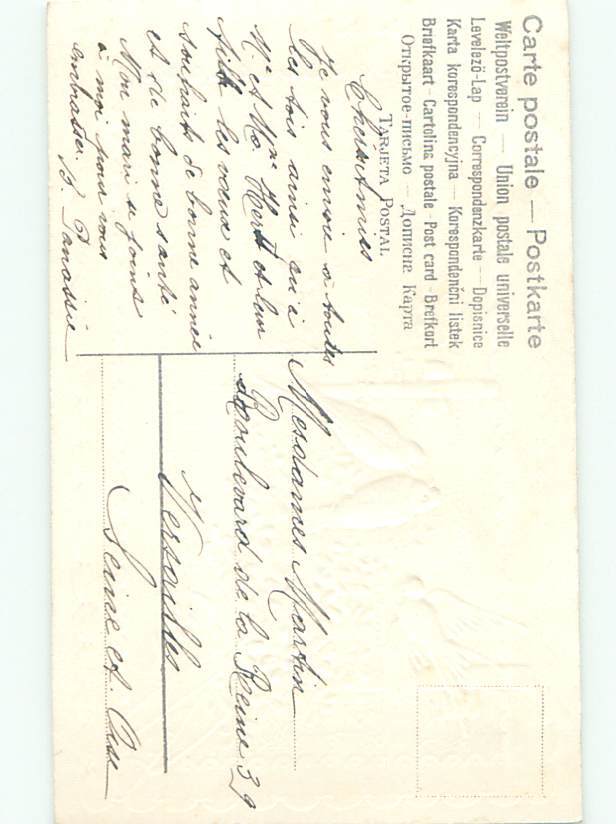 Carte postale — Postkarte
Weltpostverein — Union postale universelle
Levelező-Lap — Correspondenzkarte — Dopisnice
Karta korespondencyjna — Korespondenční listek
Briefkaart - Cartolina postale - Post card - Brefkort
Открытое-письмо — Дописна Карта
TARJETA POSTAL
Chères Amies
Je vous envoie à toutes
les trois ainsi qu'à
Mr et Me et leur
fille les vœux et
souhaits de bonne année
et de bonne santé
Mon mari se joint
à moi pour vous
embrasser. B.
Mesdames Martin
Boulevard de la Reine 39
Versailles
Seine et Oise